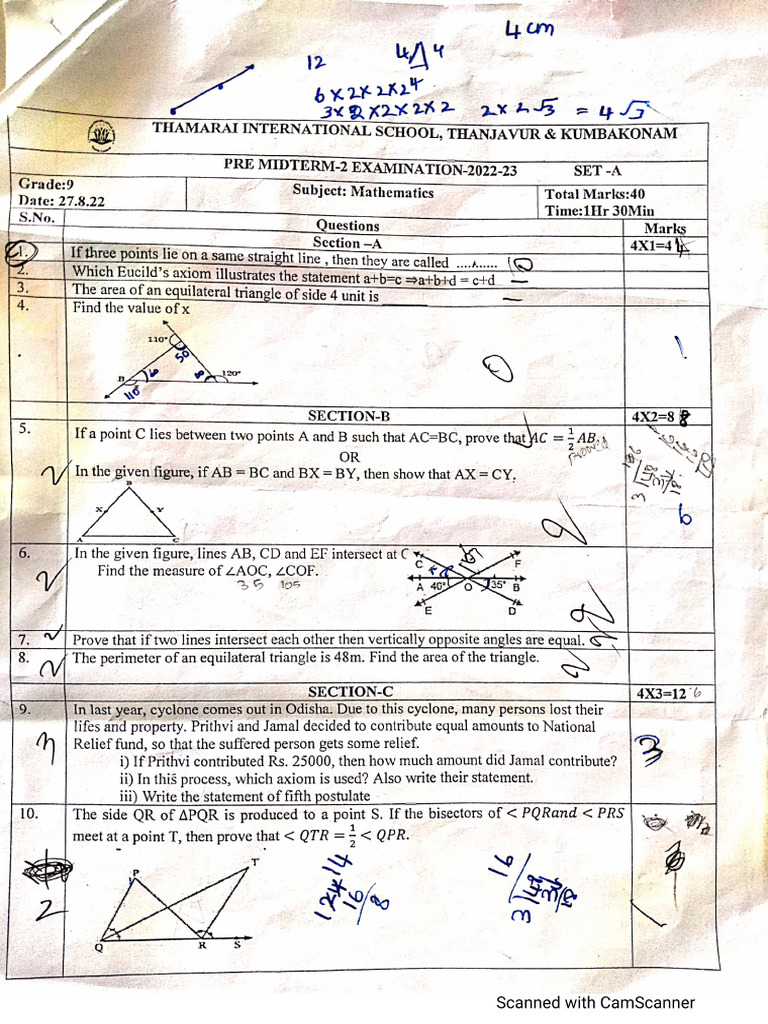 4 cm
12
4 4
6×2×2×2⁴
3×2×2×2×2×2 2×2√3 = 4√3
THAMARAI INTERNATIONAL SCHOOL, THANJAVUR & KUMBAKONAM
PRE MIDTERM-2 EXAMINATION-2022-23 SET -A
Grade:9
Date: 27.8.22
Subject: Mathematics
Total Marks:40
Time:1Hr 30Min
S.No. Questions Marks
Section –A 4X1=4
1. If three points lie on a same straight line , then they are called
2. Which Eucild's axiom illustrates the statement a+b=c ⇒a+b+d = c+d
3. The area of an equilateral triangle of side 4 unit is ______
4. Find the value of x
110°
50
B
120°
110
SECTION-B 4X2=8
5. If a point C lies between two points A and B such that AC=BC, prove that AC = 1/2 AB.
OR
In the given figure, if AB = BC and BX = BY, then show that AX = CY.
B
X Y
A C
6
6. In the given figure, lines AB, CD and EF intersect at O
Find the measure of ∠AOC, ∠COF.
35 105
C F
A 40° O 35° B
E D
7. Prove that if two lines intersect each other then vertically opposite angles are equal.
8. The perimeter of an equilateral triangle is 48m. Find the area of the triangle.
SECTION-C 4X3=12
9. In last year, cyclone comes out in Odisha. Due to this cyclone, many persons lost their
lifes and property. Prithvi and Jamal decided to contribute equal amounts to National
Relief fund, so that the suffered person gets some relief.
i) If Prithvi contributed Rs. 25000, then how much amount did Jamal contribute?
ii) In this process, which axiom is used? Also write their statement.
iii) Write the statement of fifth postulate
3
10. The side QR of ΔPQR is produced to a point S. If the bisectors of < PQRand < PRS
meet at a point T, then prove that < QTR = 1/2 < QPR.
2
P T
Q R S
16
Scanned with CamScanner